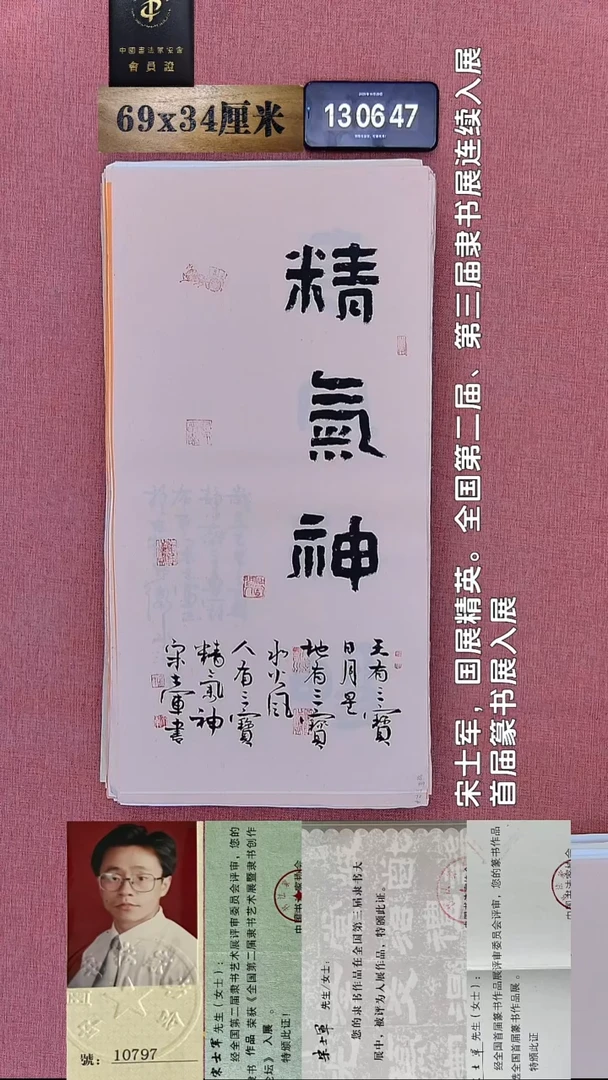 中國書法家協會
會員證
69x34厘米
13 06 47
精氣神
天有三寶
日月星
地有三寶
水火風
人有三寶
精氣神
宋士軍書
宋士军，国展精英。全国第二届、第三届隶书展连续入展
首届篆书展入展
号: 10797
宋士军 先生(女士):
经全国第二届隶书艺术展评审委员会评审，您的
隶书 作品 荣获《全国第二届隶书艺术展暨隶书创作
论坛》 入展 。
特颁此证!
中国书法家协会
宋士军 先生/女士:
您的隶书作品在全国第三届隶书大
展中，被评为入展作品，特颁此证。
士军 先生(女士):
经全国首届篆书作品展评审委员会评审，您的篆书作品
选全国首届篆书作品展。
特颁此证